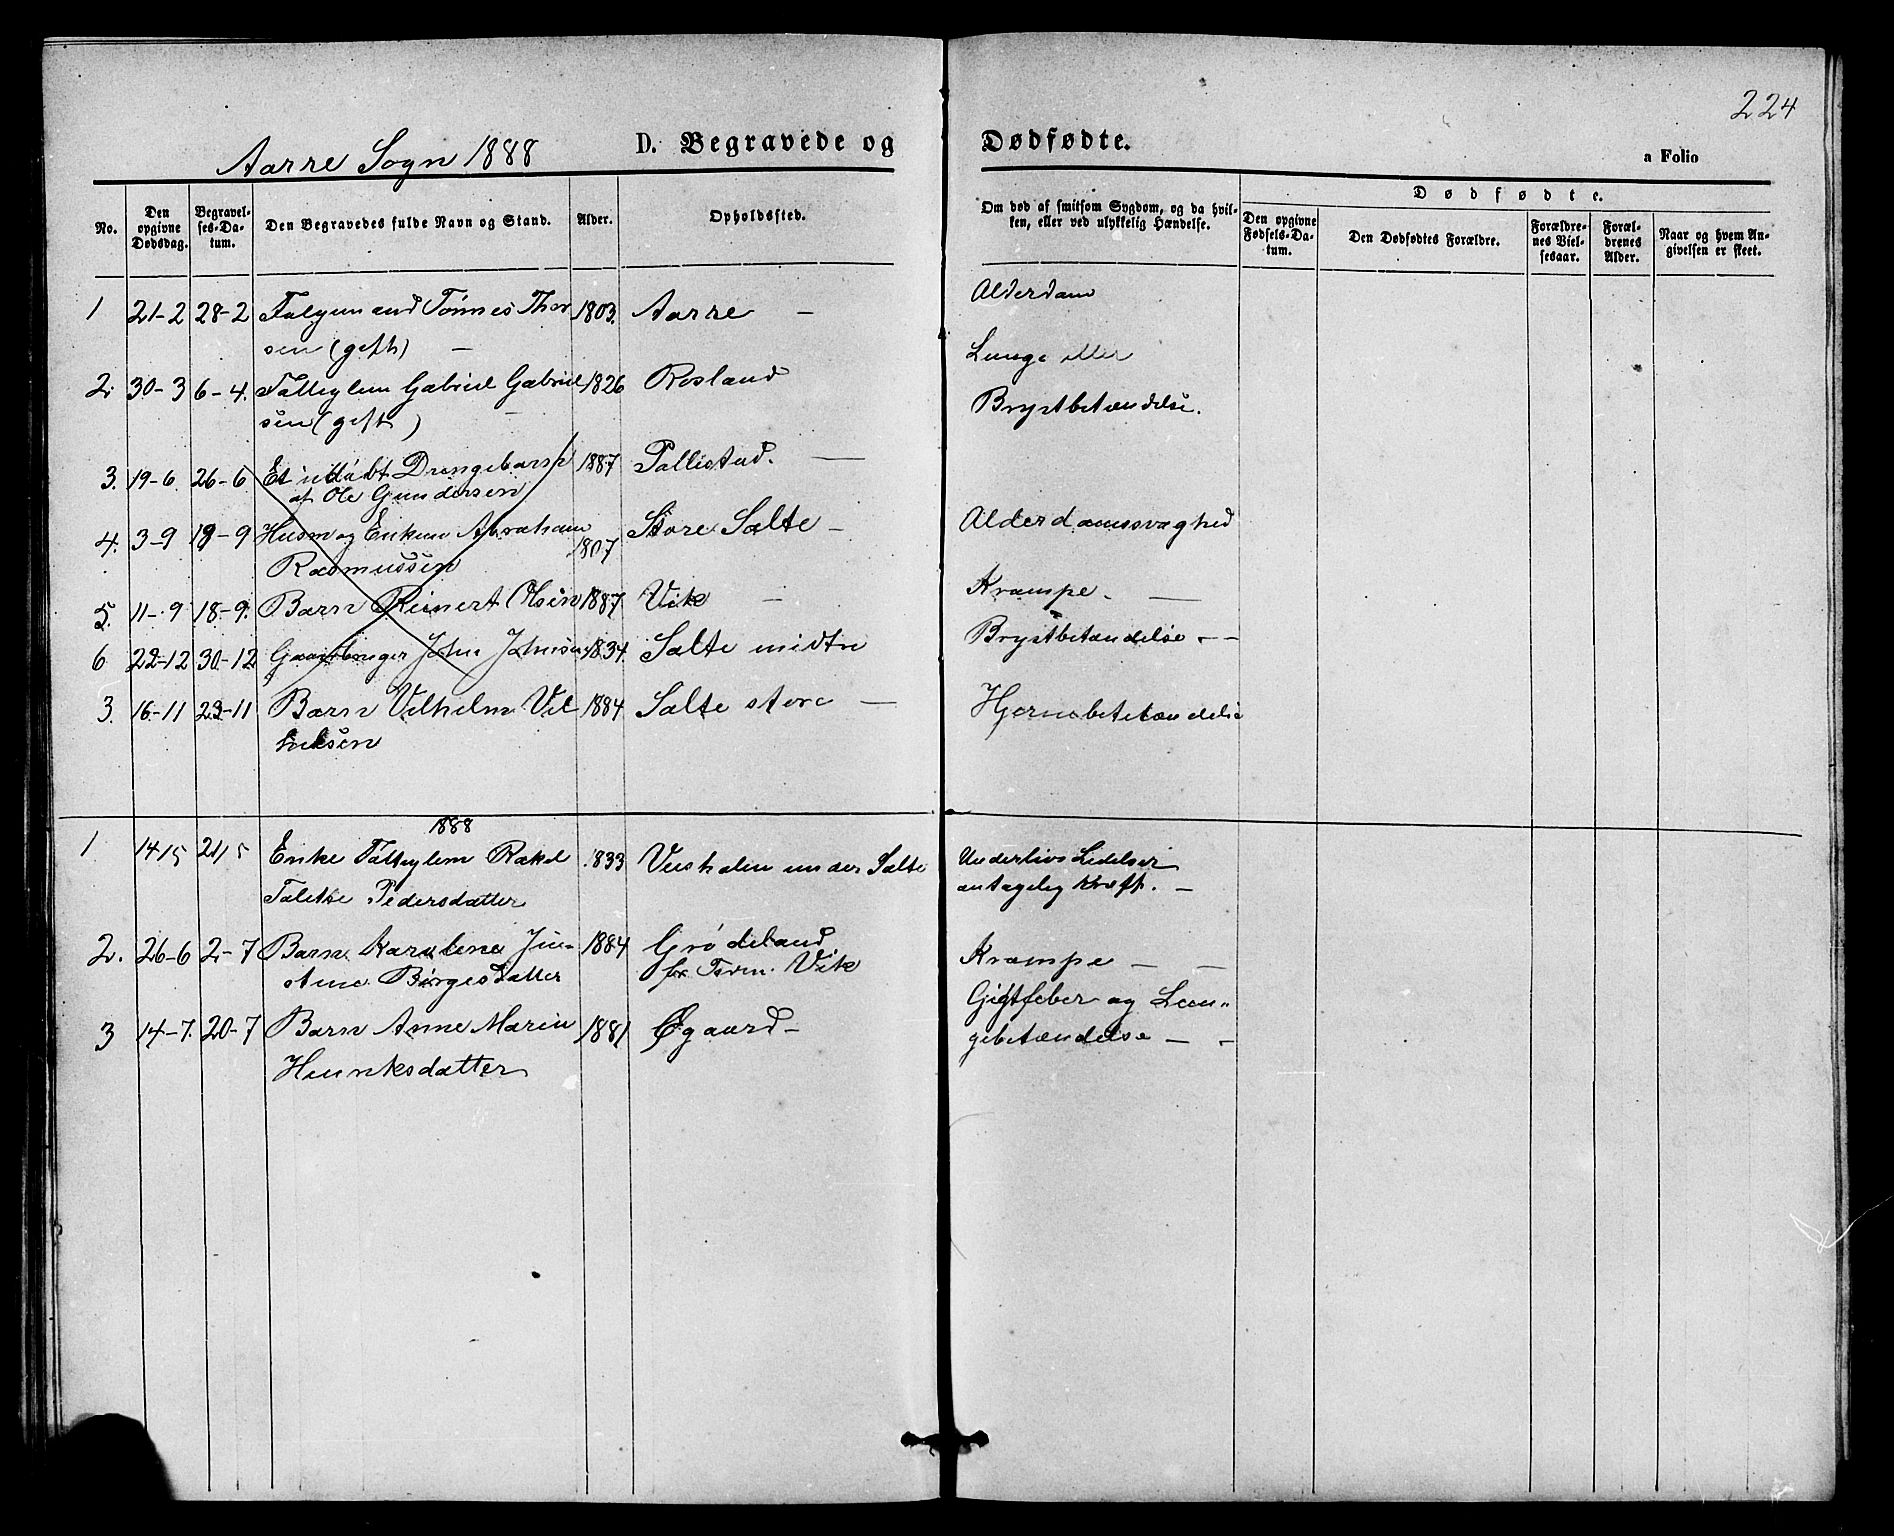 224
Aarre Sogn 1888 D. Begravede og Dødfødte.
a Folio
No. Den opgivne Dødsdag. Begravelses-Datum. Den Begravedes fulde Navn og Stand. Alder. Opholdssted. Om død af smitsom Sygdom, og da hvilken, eller ved ulykkelig Hændelse. Dødfødte.
Den opgivne Fødsels-Datum. Den Dødfødtes Forældre. Forældrenes Vielsesaar. Forældrenes Alder. Naar og hvem Angivelsen er skeet.
1 21-2 28-2 Tønnes Thor 1803. Aarre – Alderdom
sen (gift) –
2. 30-3 6-4. Gabriel Gabriel 1826 Rosland Lunge eller
sen (gift) – Brystbetændelse.
3. 19-6. 26-6. Et udøbt Drengebarn 1887 Pollestad. –
af Ole Gundersen
4. 3-9 19-9 Husm og Enkem Abraham 1807 Store Salte – Alderdomssvaghed
Rasmussen
5. 11-9 18-9. Barn Reinert Olsen 1887 Vik – Krampe. –
6 22-12 30-12 Gaardbruger John Johnsen 1834. Salte midtre Brystbetændelse – –
3. 16-11 23-11 Barn Vilhelm Vil 1884 Salte store – Hjernebetændelse
helmsen
1888
1 14/5 21/5 Enke Rakel 1833 under Salte Underlivs Lidelser
Taletse Pedersdatter antagelig Kræft. –
2. 26-6 2-7 Barn Karoline Ju- 1884 Grødeland Krampe – –
stine Børgesdatter fr Tarm. Vik
3 14-7. 20-7 Barn Anne Marin 1881 Øgaard – Gigtfeber og Lun-
Henriksdatter gebetændelse – –